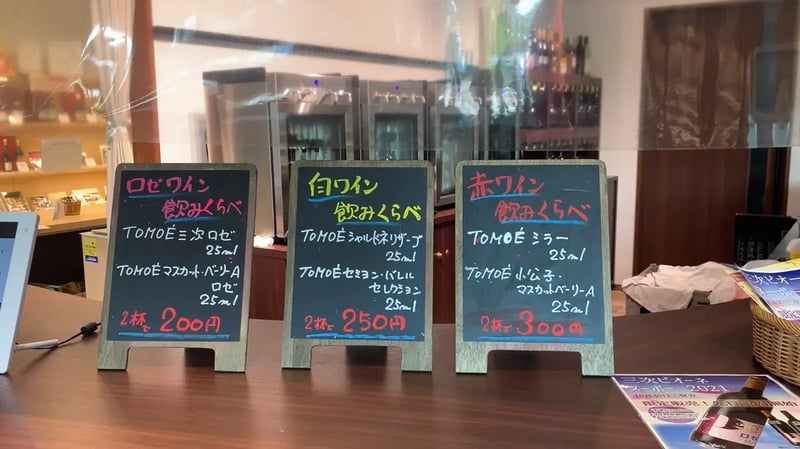 ロゼワイン
飲みくらべ
TOMOÉ三次ロゼ
25ml
TOMOÉマスカット・ベーリーA
ロゼ
25ml
2杯で 200円
白ワイン
飲みくらべ
TOMOÉシャルドネリザーブ
25ml
TOMOÉセミヨン・バレル
セレクション
25ml
2杯で 250円
赤ワイン
飲みくらべ
TOMOÉ ミラー
25ml
TOMOÉ 小公子・
マスカットベーリーA
25ml
2杯で 300円
三次ピオーネ
ヌーボー 2021